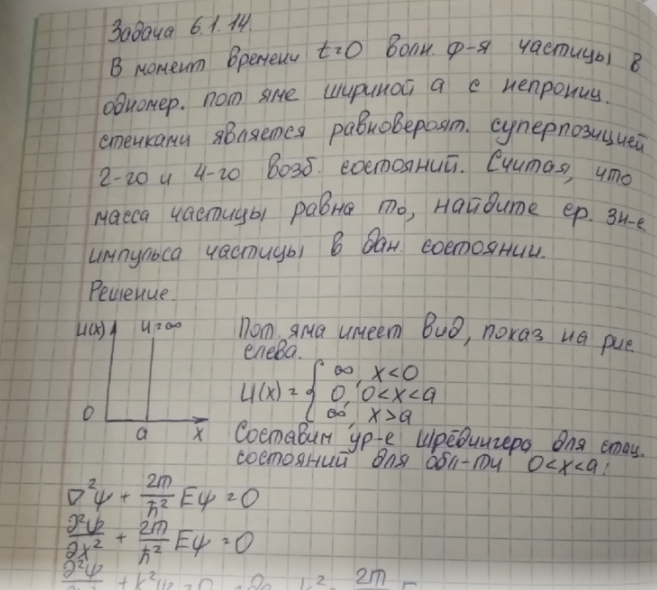 Задача 6.1.14.
В момент времени t=0 волн. ф-я частицы в
одномер. пот яме шириной a с непрониц.
стенками является равновероят. суперпозицией
2-го и 4-го возб. состояний. Считая, что
масса частицы равна m₀, найдите ср. зн-е
импульса частицы в дан. состоянии.
Решение.
U(x) U=∞ Пот. яма имеет вид, показ на рис
слева.
U(x) = { ∞, x<0
0, 0<x<a
∞, x>a
0 a x
Составим ур-е Шрёдингера для стац.
состояний для обл-ти 0<x<a:
∇²ψ + 2m/ħ² Eψ = 0
∂²ψ/∂x² + 2m/ħ² Eψ = 0
∂²ψ + k²ψ = 0 k² = 2m